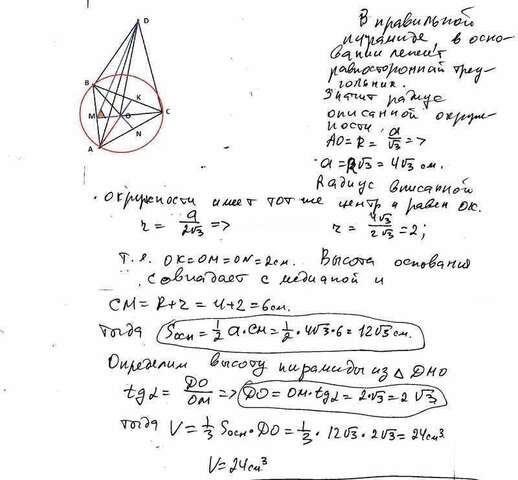 D
B
K
M
O
C
N
A
В правильной
пирамиде, в осно-
вании лежит
равносторонний треу-
гольник.
Значит радиус
описанной окруж-
ности
AO = R = a/√3 =>
a = R√3 = 4√3 см.
Радиус вписанной
окружности имеет тот же центр и равен OK.
r = a/2√3 => r = 4√3/2√3 = 2;
Т.е. OK = OM = ON = 2см. Высота основания
совпадает с медианой и
CM = R + r = 4 + 2 = 6см.
тогда Sосн = 1/2 a · CM = 1/2 · 4√3 · 6 = 12√3 см.
Определим высоту пирамиды из △ DMO
tg α = DO/OM => DO = OM · tg α = 2 · √3 = 2√3
тогда V = 1/3 Sосн · DO = 1/3 · 12√3 · 2√3 = 24см³
V = 24см³